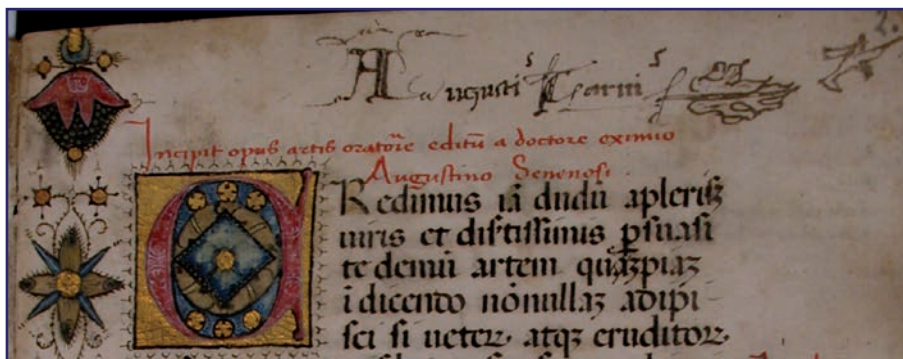 2.
Augusti
Incipit opus artis oratorie editũ a doctore eximio
Augustino Senensi.
CRedimus iã dudũ a pleriſqȝ
uiris et diſtiſſimis ꝑſuaſi
te demũ artem quãpiaȝ
ĩ dicendo nõnullaȝ adipi-
ſci ſi ueterꝝ atqȝ eruditorꝝ